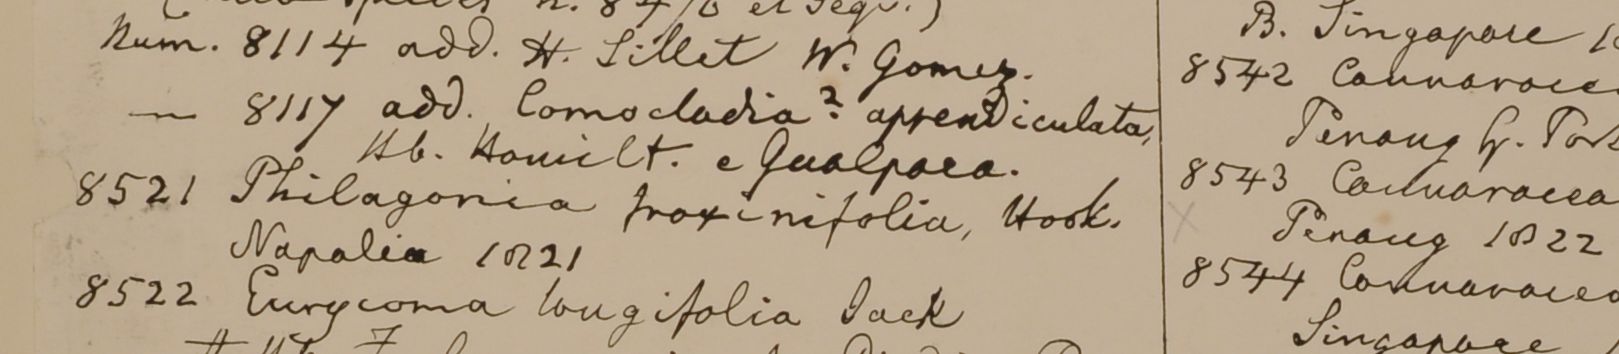 species n. 8470 et sequ.)
Num. 8114 add. H. Sillet W. Gomez.
— 8117 add. Comocladia? appendiculata,
Hb. Hamilt. e Gualpara.
8521 Philagonia fraxinifolia, Hook.
Napalia 1821
8522 Eurycoma longifolia Jack
B. Singapore
8542 Connaracea
Penang G. Port
8543 Connaracea
Penang 1822
8544 Connaracea
Singapore